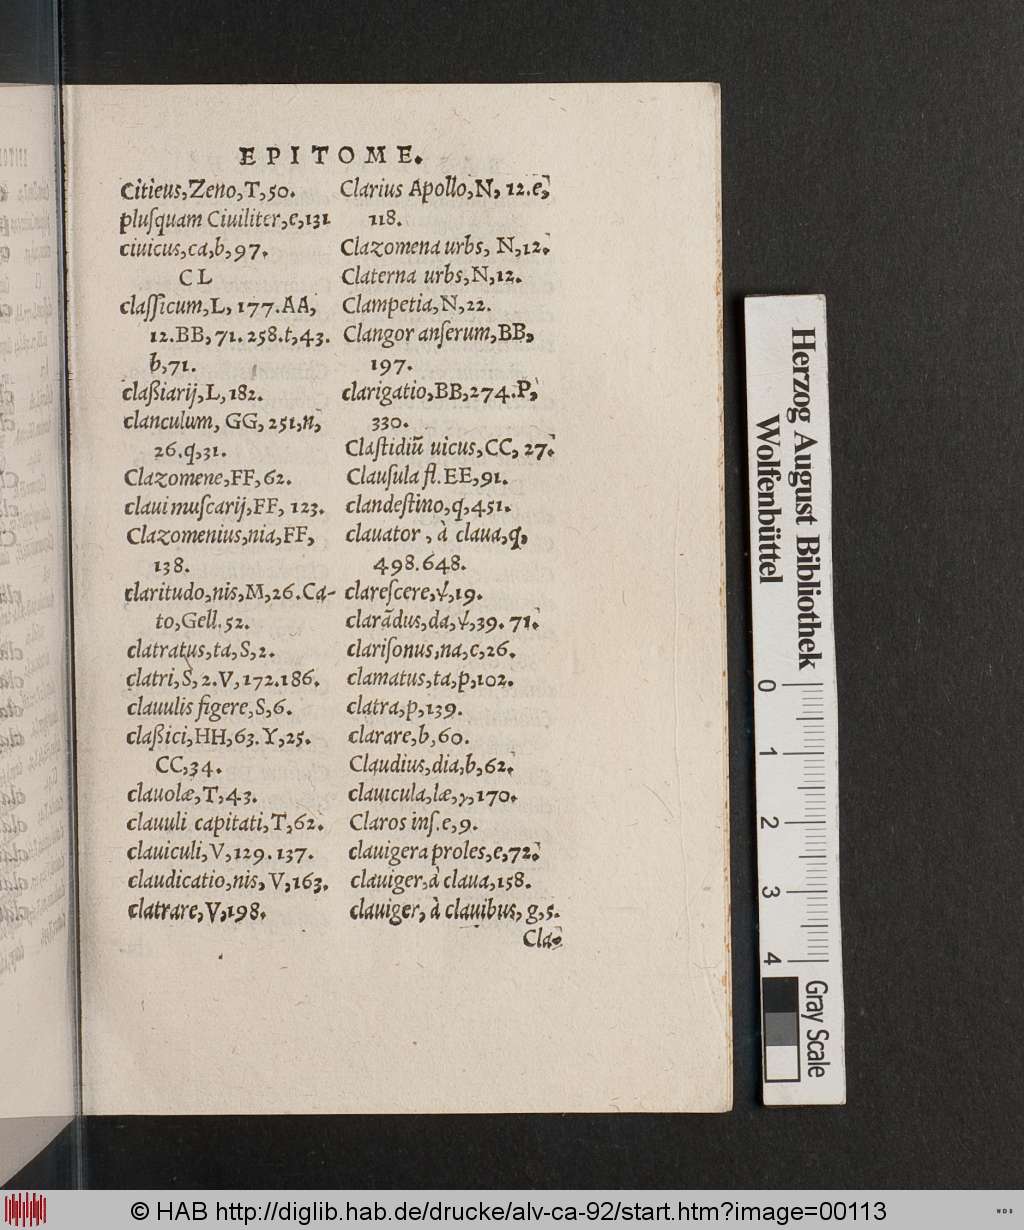 EPITOME.
Citieus, Zeno, T, 50.
pluſquam Ciuiliter, e, 131
ciuicus, ca, b, 97.
CL
claſſicum, L, 177. AA,
12. BB, 71. 258. t, 43.
b, 71.
claßiarij, L, 182.
clanculum, GG, 251, n,
26. q, 31.
Clazomene, FF, 62.
claui muſcarij, FF, 123.
Clazomenius, nia, FF,
138.
claritudo, nis, M, 26. Ca-
to, Gell. 52.
clatratus, ta, S, 2.
clatri, S, 2. V, 172. 186.
clauulis figere, S, 6.
claßici, HH, 63. Y, 25.
CC, 34.
clauolæ, T, 43.
clauuli capitati, T, 62.
clauiculi, V, 129. 137.
claudicatio, nis, V, 163.
clatrare, V, 198.
Clarius Apollo, N, 12. e,
118.
Clazomena urbs, N, 12.
Claterna urbs, N, 12.
Clampetia, N, 22.
Clangor anſerum, BB,
197.
clarigatio, BB, 274. P,
330.
Claſtidiũ uicus, CC, 27.
Clauſula fl. EE, 91.
clandeſtino, q, 451.
clauator, à claua, q,
498. 648.
clareſcere, ψ, 19.
clarãdus, da, ψ, 39. 71.
clariſonus, na, c, 26.
clamatus, ta, p, 102.
clatra, p, 139.
clarare, b, 60.
Claudius, dia, b, 62.
clauicula, læ, γ, 170.
Claros inſ. e, 9.
clauigera proles, e, 72.
clauiger, à claua, 158.
clauiger, à clauibus, g, 5.
Cla-
Herzog August Bibliothek
Wolfenbüttel
0 1 2 3 4
Gray Scale
© HAB http://diglib.hab.de/drucke/alv-ca-92/start.htm?image=00113